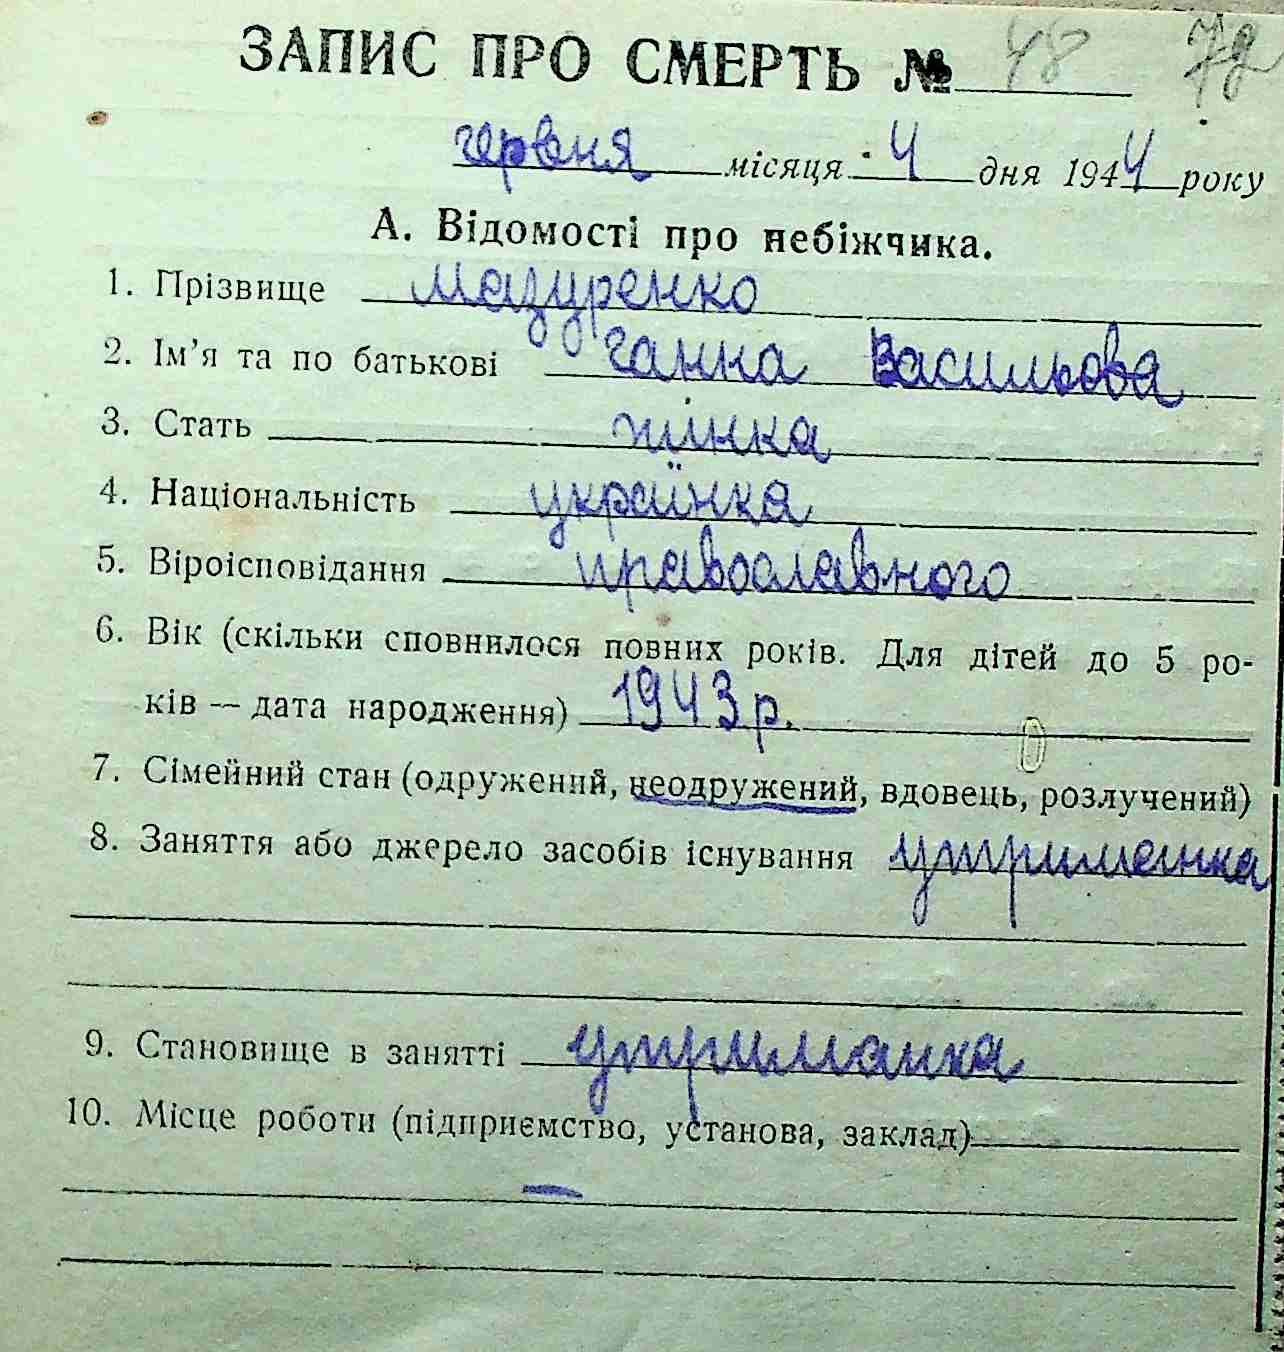 ЗАПИС ПРО СМЕРТЬ № 48
червня місяця 4 дня 1944 року
А. Відомості про небіжчика.
1. Прізвище Мазуренко
2. Ім'я та по батькові Ганна Васильова
3. Стать жінка
4. Національність українка
5. Віроісповідання православного
6. Вік (скільки сповнилося повних років. Для дітей до 5 ро-
ків — дата народження) 1943 р.
7. Сімейний стан (одружений, неодружений, вдовець, розлучений)
8. Заняття або джерело засобів існування утриманка
9. Становище в занятті утриманка
10. Місце роботи (підприємство, установа, заклад)
—